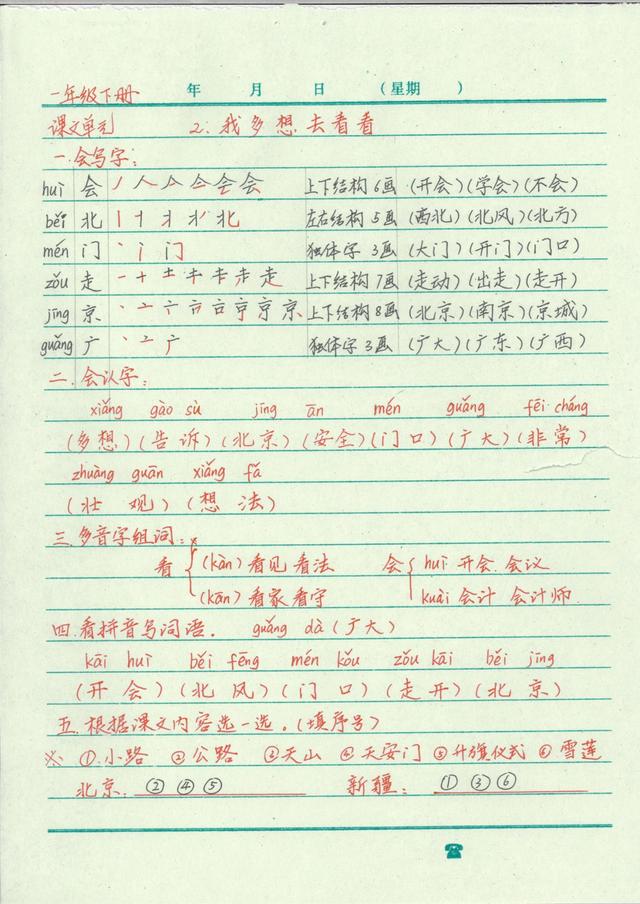 年 月 日 （星期 ）
一年级下册
课文单元 2.我多想去看看
一.会写字：
huì 会 丿 人 亼 亼 会 会 上下结构 6画 (开会)(学会)(不会)
běi 北 丨 十 扌 北 北 左右结构 5画 (西北)(北风)(北方)
mén 门 丶 门 门 独体字 3画 (大门)(开门)(门口)
zǒu 走 一 十 土 走 走 上下结构 7画 (走动)(出走)(走开)
jīng 京 丶 亠 亠 京 上下结构 8画 (北京)(南京)(京城)
guǎng 广 丶 亠 广 独体字 3画 (广大)(广东)(广西)
二.会认字：
xiǎng gào sù jīng ān mén guǎng fēi cháng
(多想)(告诉)(北京)(安全)(门口)(广大)(非常)
zhuàng guān xiǎng fǎ
(壮观)(想法)
三.多音字组词：
看 (kàn) 看见 看法 会 huì 开会 会议
(kān) 看家 看守 kuài 会计 会计师
四.看拼音写词语. guǎng dà (广大)
kāi huì běi fēng mén kǒu zǒu kāi běi jīng
(开会)(北风)(门口)(走开)(北京)
五.根据课文内容选一选.(填序号)
※ ①小路 ②公路 ③天山 ④天安门 ⑤升旗仪式 ⑥雪莲
北京: ②④⑤ 新疆: ①③⑥